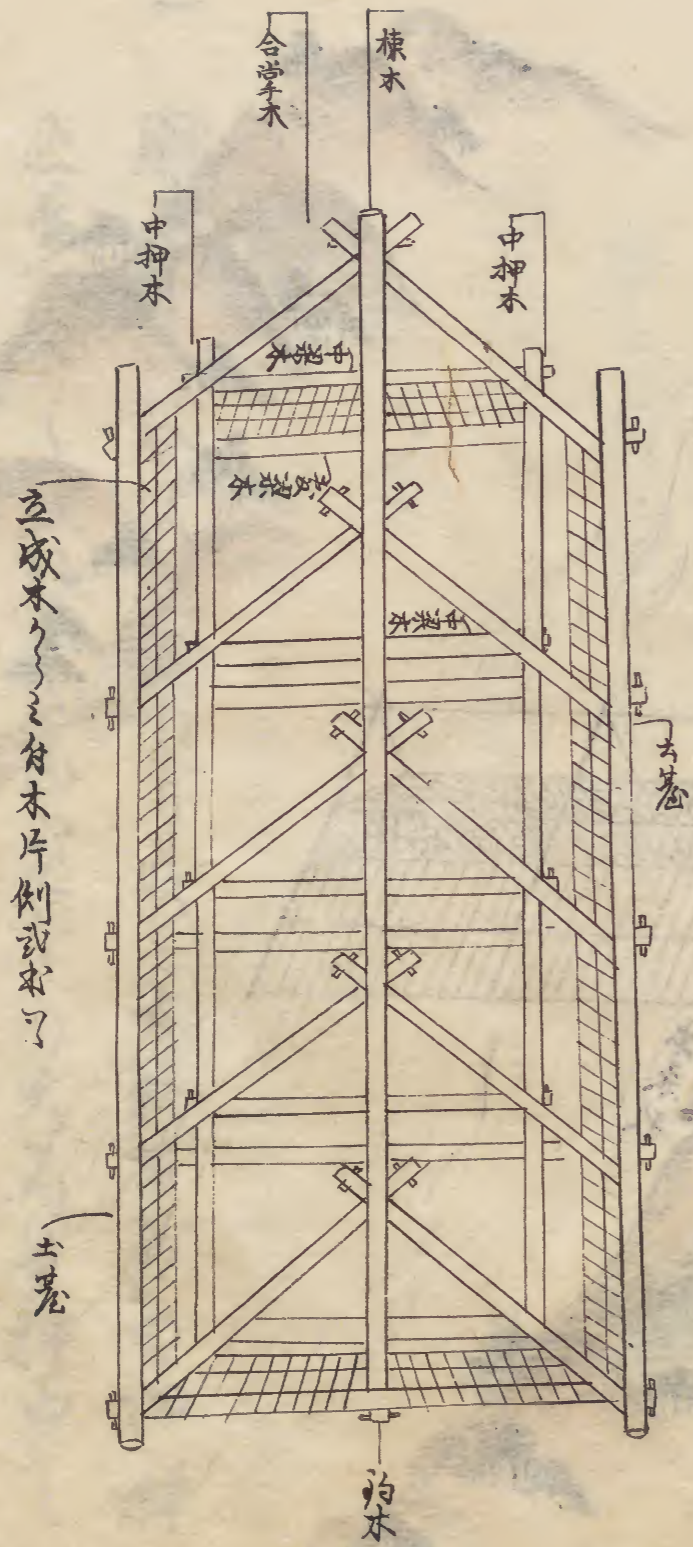 棟木
合掌木
中押木
中押木
中梁木
敷梁木
中梁木
土台
立成木からミ付木片側弐本ツヽ
土台
鈎木